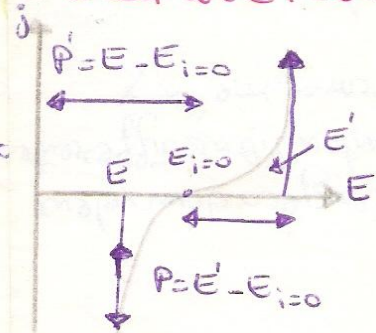 j
P'=E-E_{i=0}
E'
E_{i=0}
E
E
P=E'-E_{i=0}